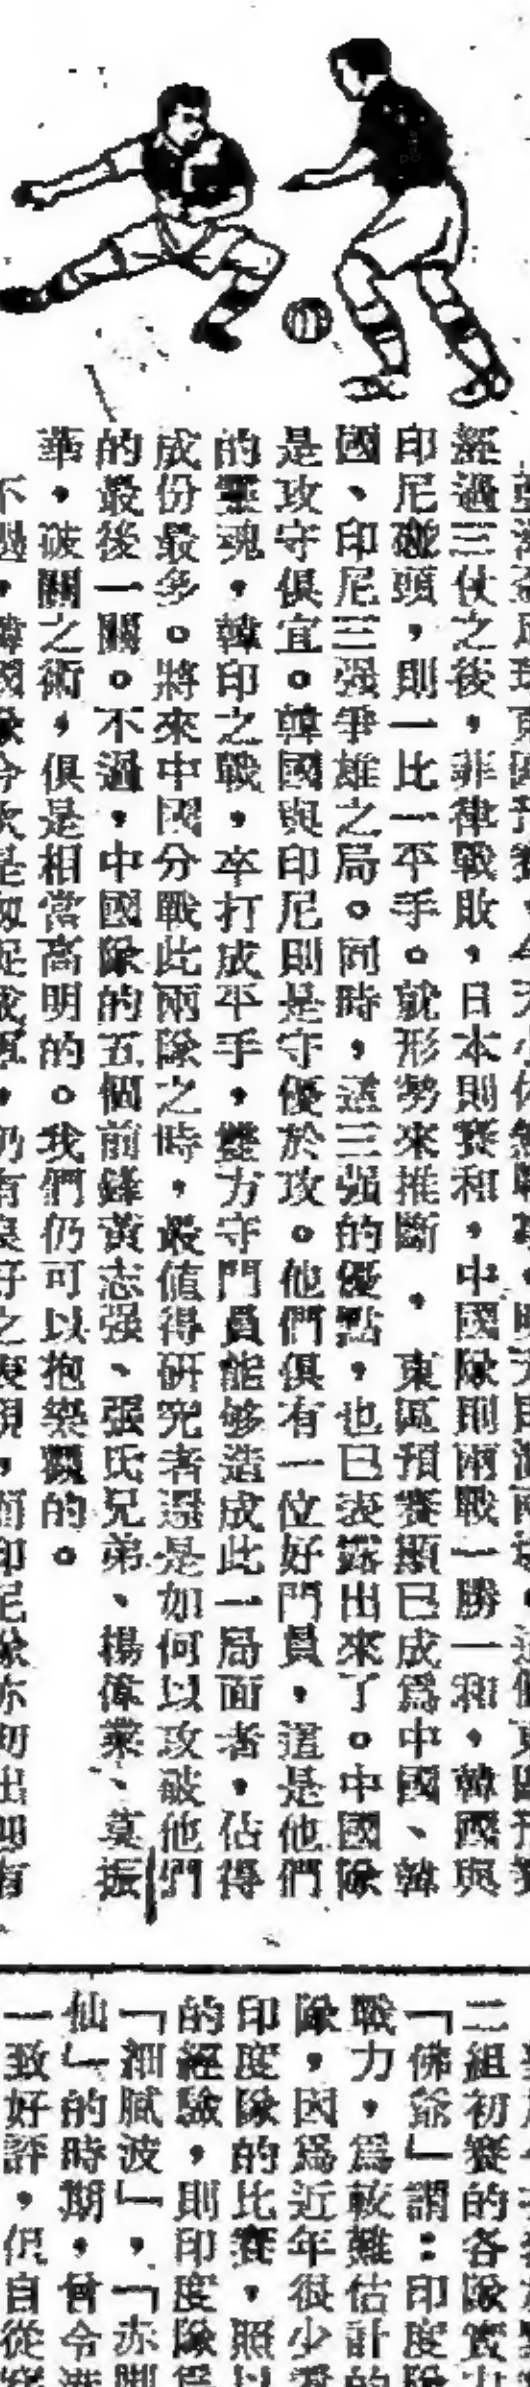 經過三仗之後，菲律戰敗，日本則賽和，中國隊則兩戰一勝一和，韓國與
印尼碰頭，則一比一平手。就形勢來推斷，東區預賽顯已成為中國、韓
國、印尼三强爭雄之局。同時，這三强的優點，也已表露出來了。中國隊
是攻守俱宜。韓國與印尼則是守優於攻。他們俱有一位好門員，這是他們
的靈魂，韓印之戰，卒打成平手，雙方守門員能够造成此一局面者，佔得
成份最多。將來中國分戰此兩隊之時，最值得研究者還是如何以攻破他們
的最後一關。不過，中國隊的五個前鋒黃志强、張氏兄弟、楊偉業、莫振
華，破關之術，俱是相當高明的。我們仍可以抱樂觀的。
二組初賽的各隊實力
「佛爺」謂：印度隊
戰力，爲較難估計的
隊，因爲近年很少看
印度隊的比賽，照以
的經驗，則印度隊爲
「細膩波」，「赤脚
仙」的時期，曾令港
一致好評，但自從穿